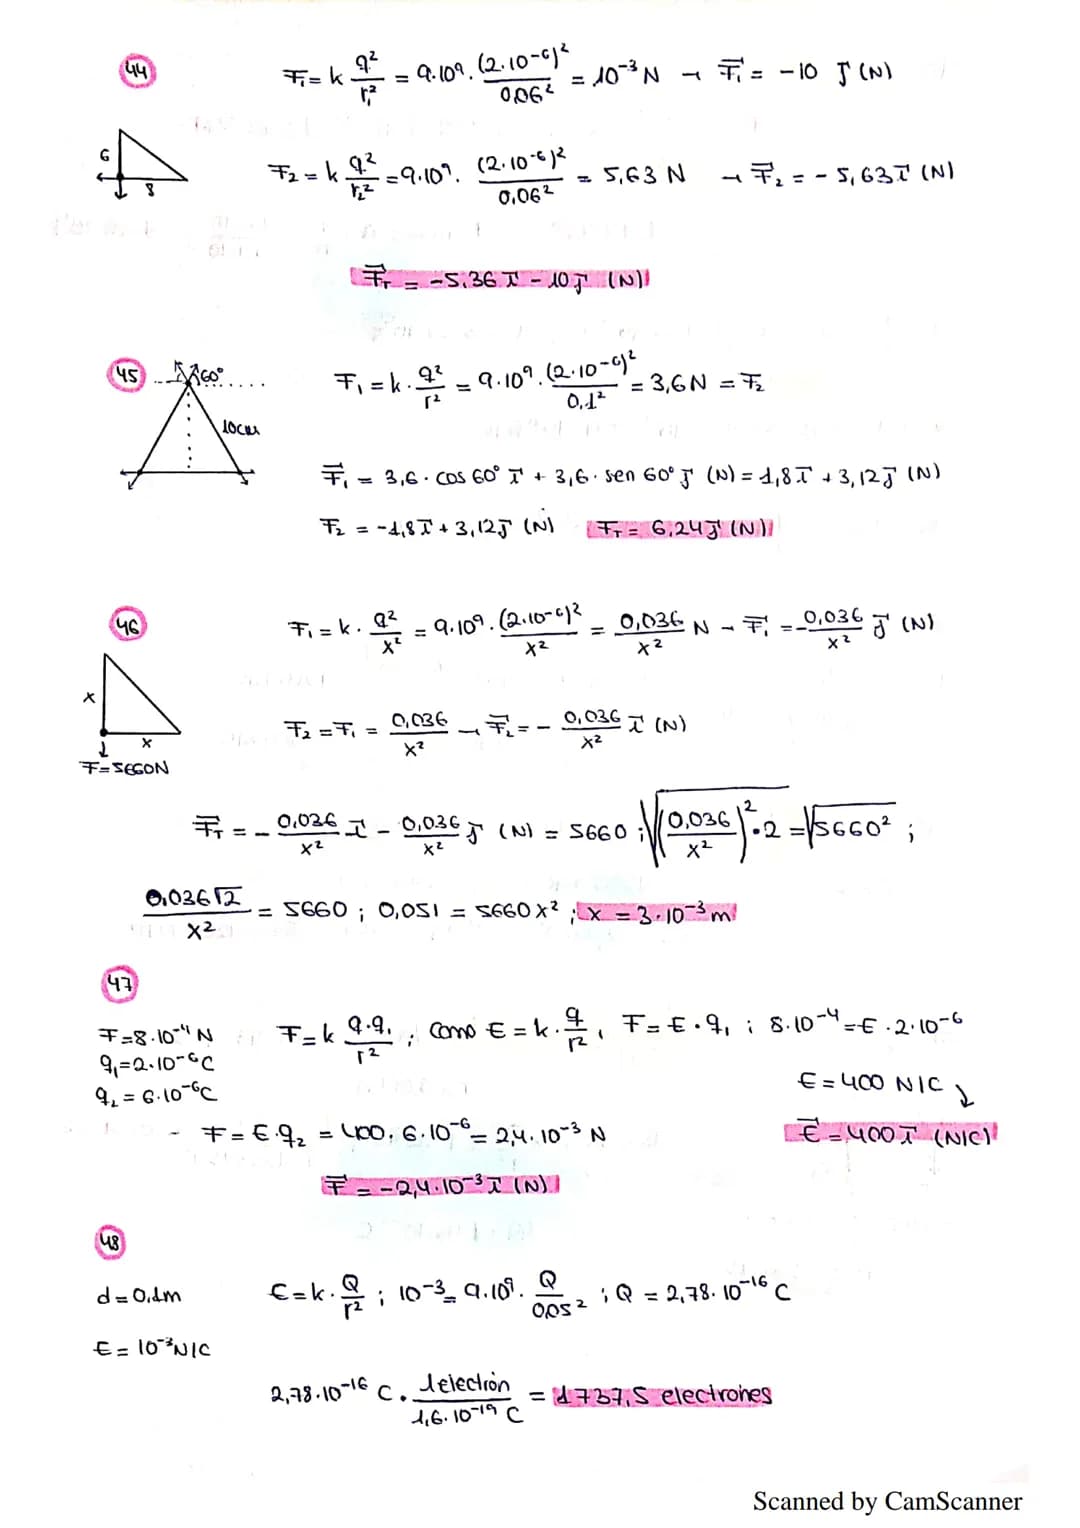 44
F₁ = k q²/r₁² = 9·10⁹ · (2·10⁻⁶)²/0,06² = 10⁻³ N → F⃗₁ = -10 j⃗ (N)
6
8
F₂ = k q²/r₂² = 9·10⁹ · (2·10⁻⁶)²/0,06² = 5,63 N → F⃗₂ = -5,63 i⃗ (N)
F⃗T = -5,36 i⃗ - 10 j⃗ (N)
45
60°
10cm
F₁ = k · q²/r² = 9·10⁹ · (2·10⁻⁶)²/0,1² = 3,6 N = F₂
F⃗₁ = 3,6 · cos 60° i⃗ + 3,6 · sen 60° j⃗ (N) = 1,8 i⃗ + 3,12 j⃗ (N)
F₂ = -1,8 i⃗ + 3,12 j⃗ (N) F⃗T = 6,24 j⃗ (N)
46
F₁ = k · q²/x² = 9·10⁹ · (2·10⁻⁶)²/x² = 0,036/x² N → F⃗₁ = -0,036/x² j⃗ (N)
x
x
F = 5660N
F₂ = F₁ = 0,036/x² → F⃗₂ = - 0,036/x² i⃗ (N)
F⃗T = - 0,036/x² i⃗ - 0,036/x² j⃗ (N) = 5660 ; √((0,036/x²)² · 2) = √5660² ;
0,036√2/x² = 5660 ; 0,051 = 5660 x² ; x = 3·10⁻³ m
47
F = 8·10⁻⁴ N
q₁ = 2·10⁻⁶ C
q₂ = 6·10⁻⁶ C
F = k q·q₁/r² ; como E = k · q/r² , F = E · q₁ ; 8·10⁻⁴ = E · 2·10⁻⁶
E = 400 N/C
E⃗ = 400 i⃗ (N/C)
- F = E·q₂ = 400 · 6·10⁻⁶ = 2,4·10⁻³ N
F⃗ = -2,4·10⁻³ i⃗ (N)
48
d = 0,1m
E = 10⁻³ N/C
E = k · Q/r² ; 10⁻³ = 9·10⁹ · Q/0,05² ; Q = 2,78·10⁻¹⁶ C
2,78·10⁻¹⁶ C · 1 electrón/1,6·10⁻¹⁹ C = 1737,5 electrones
Scanned by CamScanner